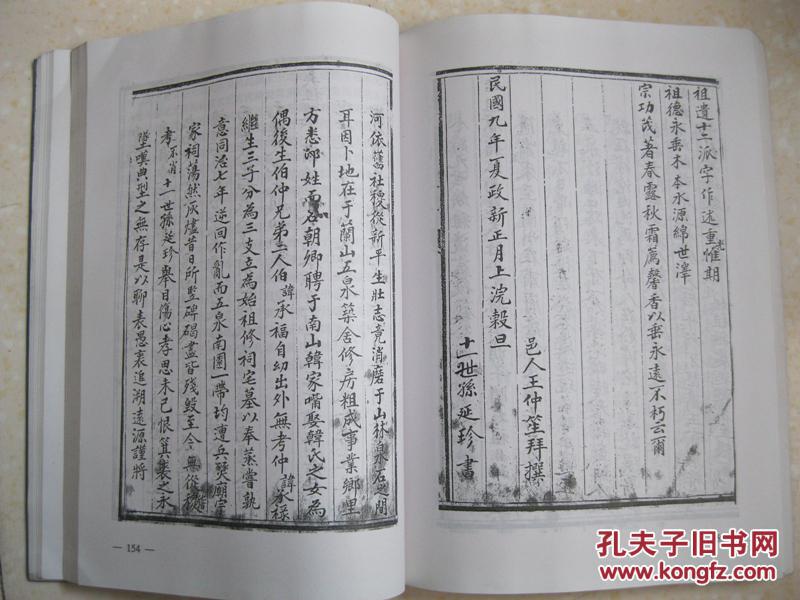 祖遺十二派字作述重光惟期
祖德永垂木本水源綿世澤
宗功茂著春露秋霜薦馨香以垂永遠不朽云爾
民國九年夏政新正月上浣穀旦
邑人王仲笙拜撰
十一世孫延珍書
河依舊社稷從新平生壯志竟消磨于山林泉石之間
耳因卜地在于蘭山五泉築舍修房粗成事業鄉里
方悉邵姓而名朝卿聘于南山韓家嘴娶韓氏之女為
偶後生伯仲兄弟二人伯諱承福自幼出外無考仲諱承祿
繼生三子分為三支立為始祖修祠宅墓以奉蒸嘗孰
意同治七年逆回作亂而五泉南園一帶均遭兵燹廟宇
家祠蕩然灰燼昔日所豎碑碣盡皆殘毀至今無從稽
考不肖十一世孫延珍舉目傷心孝思未已恨箕裘之永
墜嘆典型之無存是以聊表愚衷追溯遠源謹將
— 154 —
孔夫子旧书网
www.kongfz.com